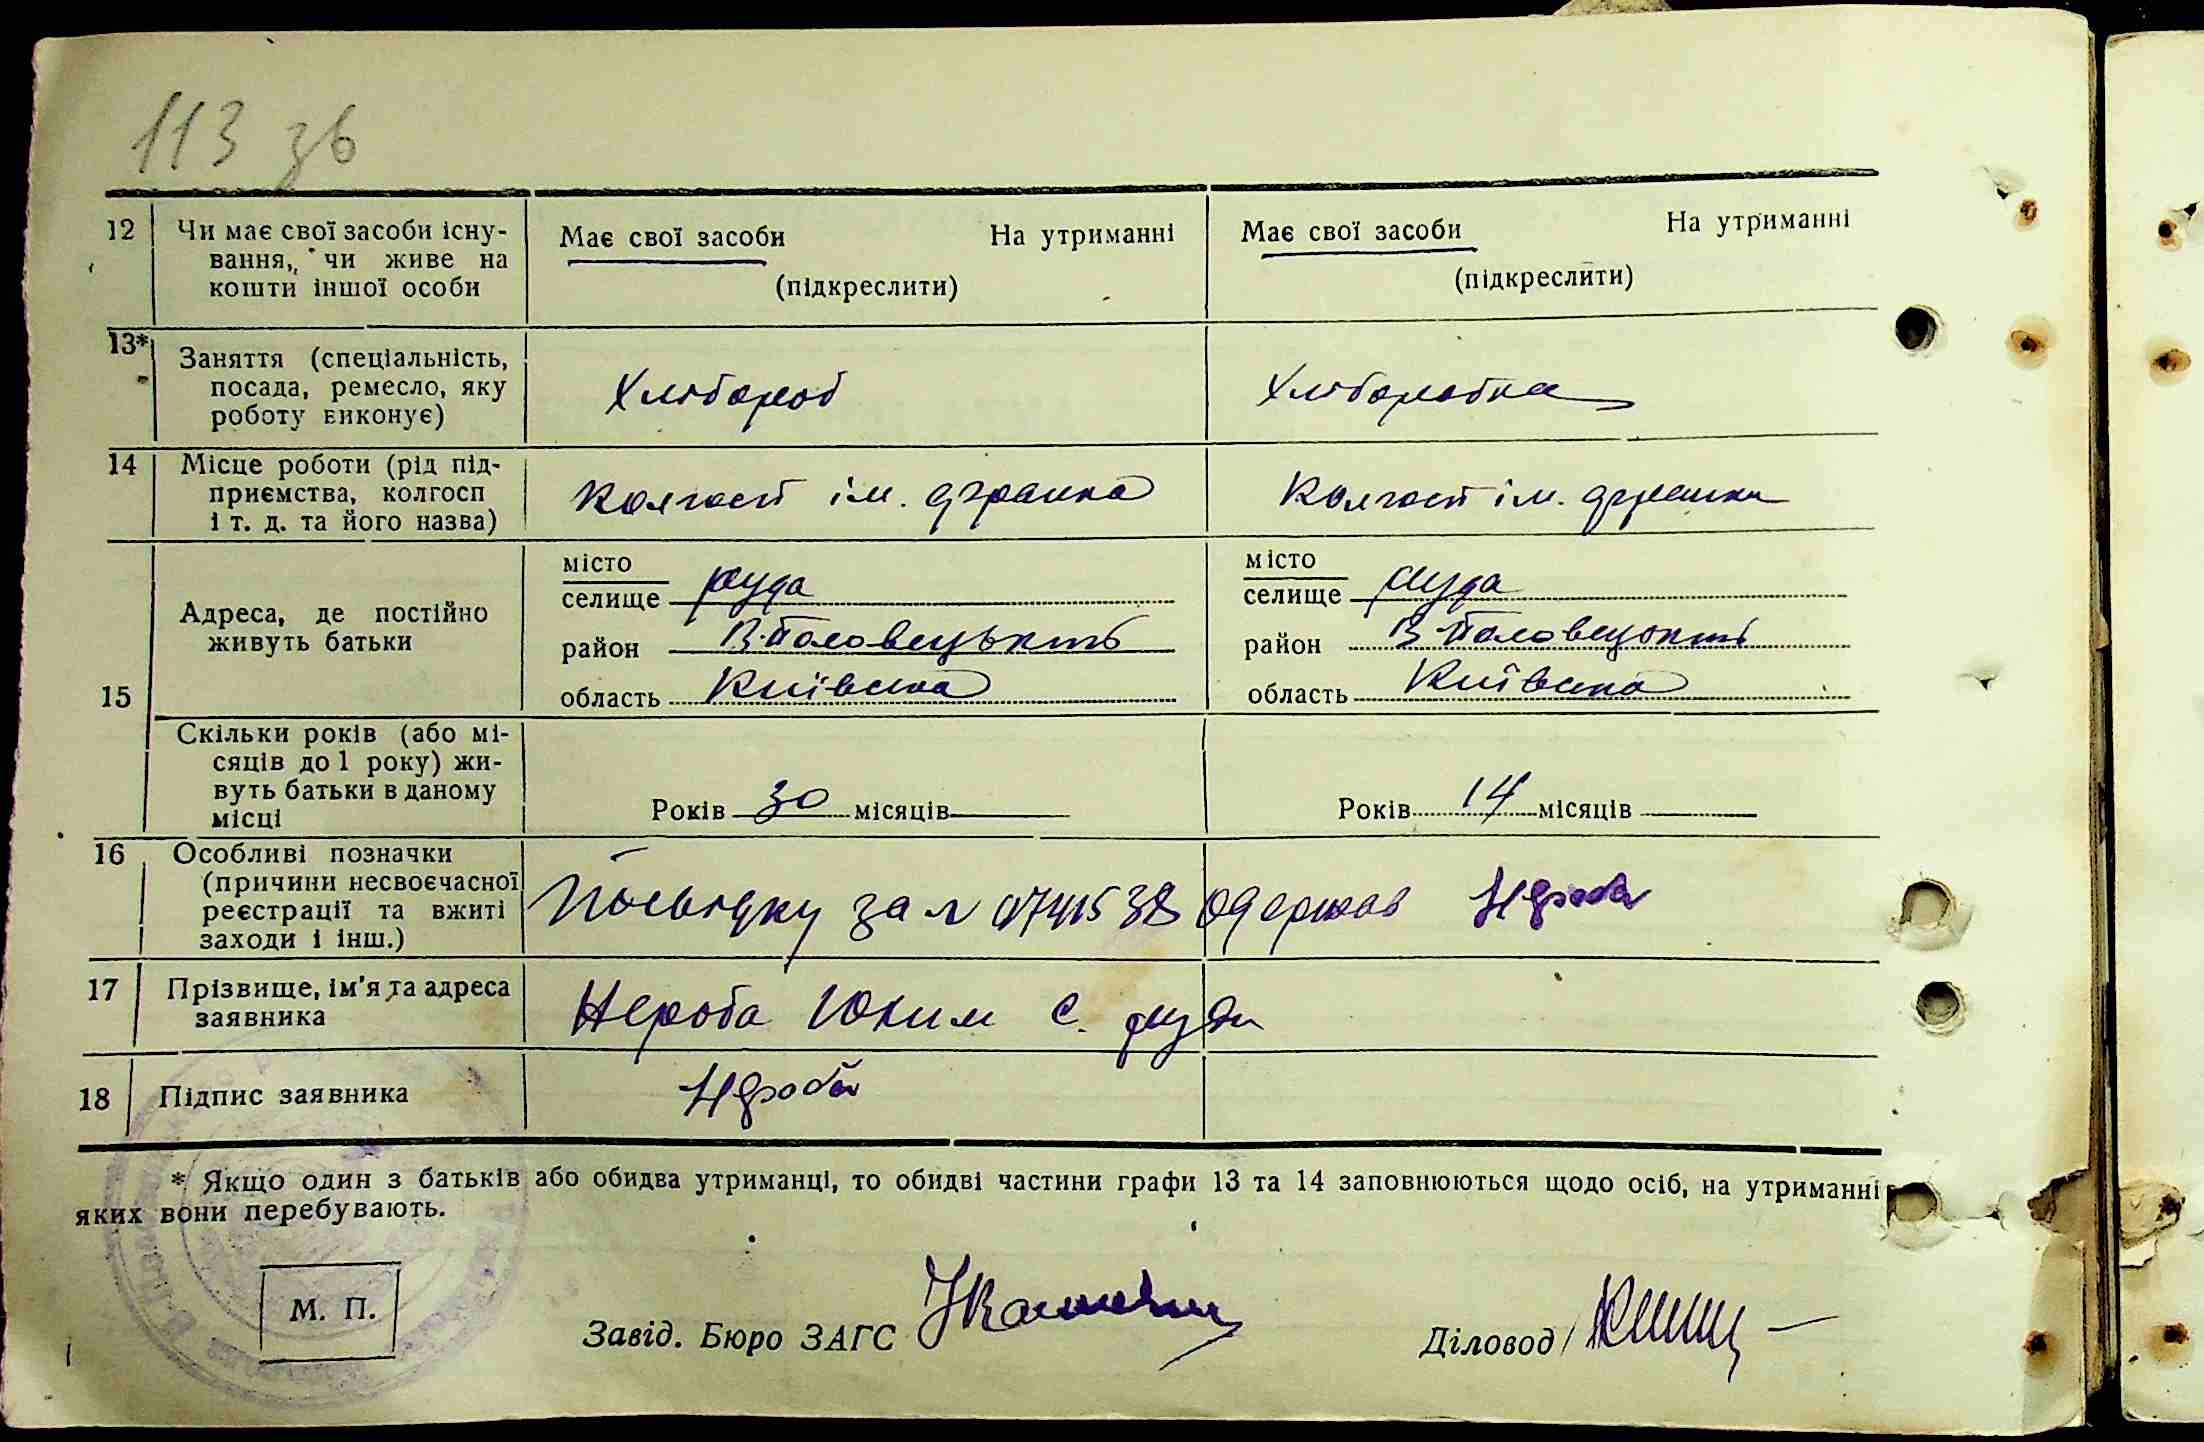 113 зв
12 Чи має свої засоби існу-
вання, чи живе на
кошти іншої особи
Має свої засоби На утриманні
(підкреслити)
Має свої засоби На утриманні
(підкреслити)
13* Заняття (спеціальність,
посада, ремесло, яку
роботу виконує)
Хлібороб
Хліборобка
14 Місце роботи (рід під-
приємства, колгосп
і т. д. та його назва)
Колгосп ім. Франка
Колгосп ім. Франка
15 Адреса, де постійно
живуть батьки
місто
селище Руда
район В-Половецький
область Київська
місто
селище Руда
район В-Половецький
область Київська
Скільки років (або мі-
сяців до 1 року) жи-
вуть батьки в даному
місці
Років 30 місяців
Років 14 місяців
16 Особливі позначки
(причини несвоєчасної
реєстрації та вжиті
заходи і інш.)
за одержав Нероба
17 Прізвище, ім'я та адреса
заявника
Нероба Юхим с. Руда
18 Підпис заявника
Нероба
* Якщо один з батьків або обидва утриманці, то обидві частини графи 13 та 14 заповнюються щодо осіб, на утриманні
яких вони перебувають.
М. П.
Завід. Бюро ЗАГС
Діловод